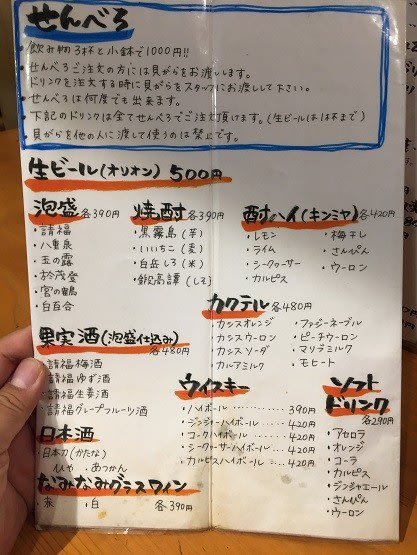 せんべろ
・飲み物3杯と小鉢で1000円!!
・せんべろご注文の方には貝がらをお渡しします。
ドリンクを注文する時に貝がらをスタッフにお渡しして下さい。
・せんべろは何度でも出来ます。
・下記のドリンクは全てせんべろでご注文頂けます。(生ビールは1杯まで)
・貝がらを他の人に渡して使うのは禁止です。
生ビール(オリオン) 500円
泡盛 各390円
・請福
・八重泉
・玉の露
・於茂登
・宮の鶴
・白百合
焼酎 各390円
・黒霧島(芋)
・いいちこ(麦)
・白岳しろ(米)
・鍛高譚(しそ)
酎ハイ(キンミヤ) 各420円
・レモン
・ライム
・シークヮーサー
・カルピス
・梅干し
・さんぴん
・ウーロン
カクテル 各480円
・カシスオレンジ
・カシスウーロン
・カシスソーダ
・カルアミルク
・ファジーネーブル
・ピーチウーロン
・マリブミルク
・モヒート
果実酒(泡盛仕込み) 各480円
・請福梅酒
・請福ゆず酒
・請福生姜酒
・請福グレープフルーツ酒
ウイスキー
・ハイボール ………… 390円
・ジンジャーハイボール …… 420円
・コークハイボール ……… 420円
・シークヮーサーハイボール … 420円
・カルピスハイボール …… 420円
ソフトドリンク 各290円
・アセロラ
・オレンジ
・コーラ
・カルピス
・ジンジャエール
・さんぴん
・ウーロン
日本酒
・日本刀(かたな)
ひや ・あつかん
なみなみグラスワイン
・赤 ・白 各390円